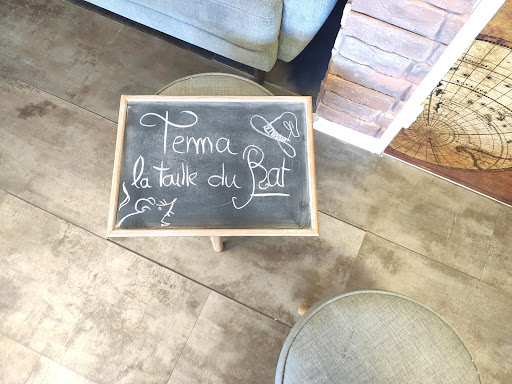 Tema
la taille du Rat